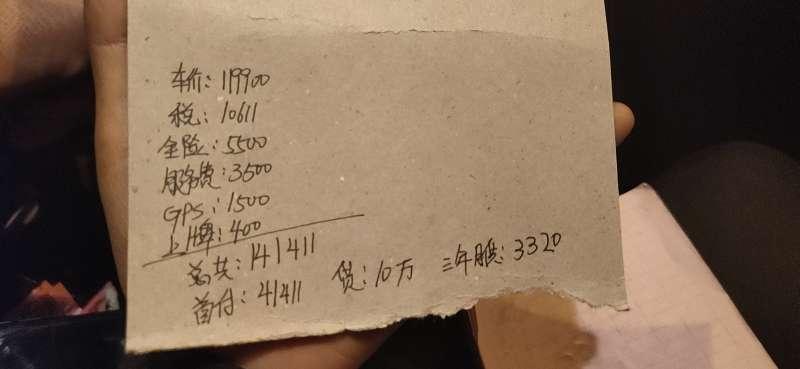 车价：119900
税：10611
全险：5500
服务费：3500
GPS：1500
上牌：400
总共：141411
首付：41411 贷：10万 三年月供：3320